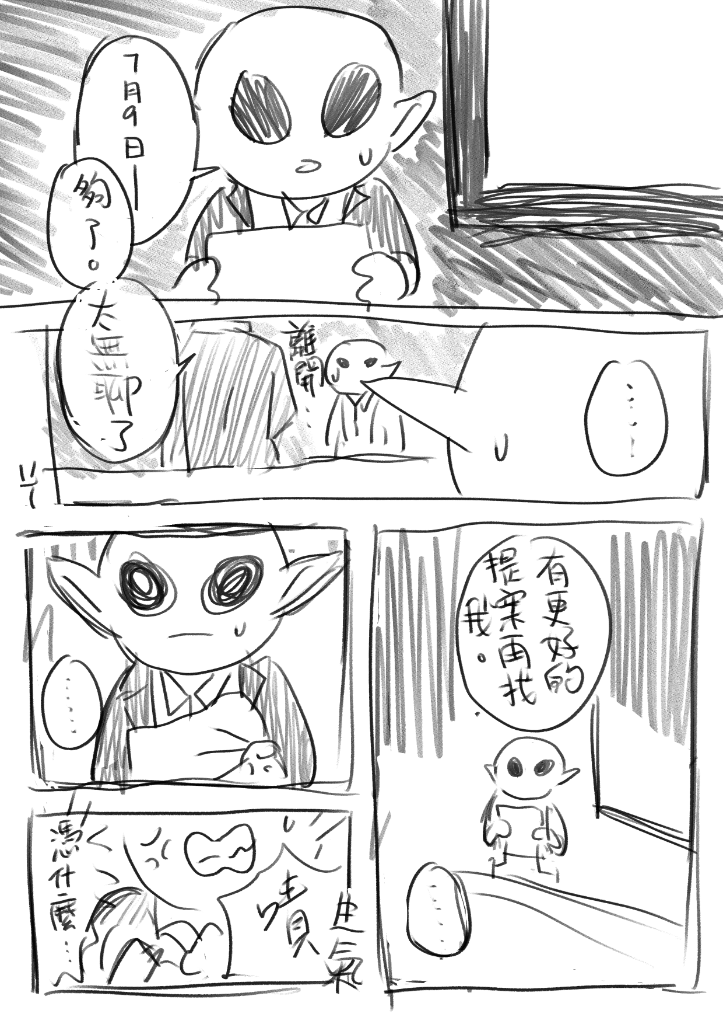 7月9日—
夠了。
太無聊了
離開…
……
有更好的
提案再找
我。
……
……
憑什麼…
嘖
生氣